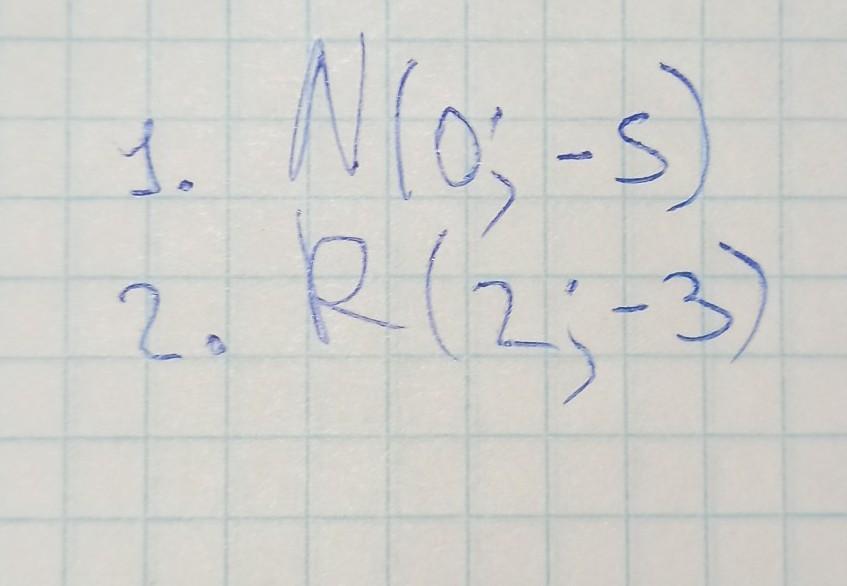 1. N(0; -5)
2. R(2; -3)